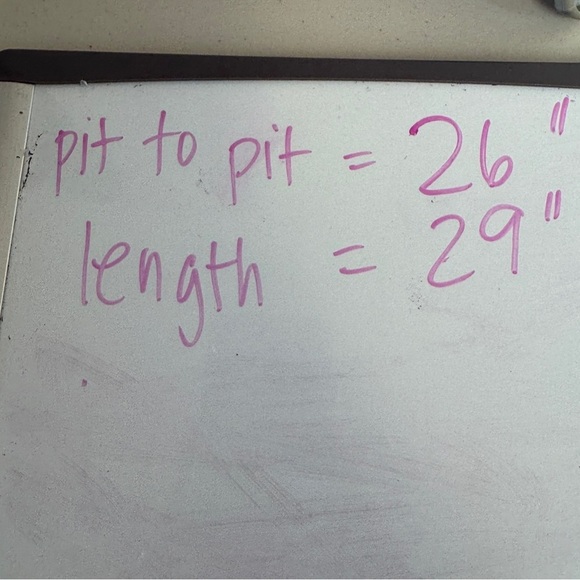 pit to pit = 26"
length = 29"